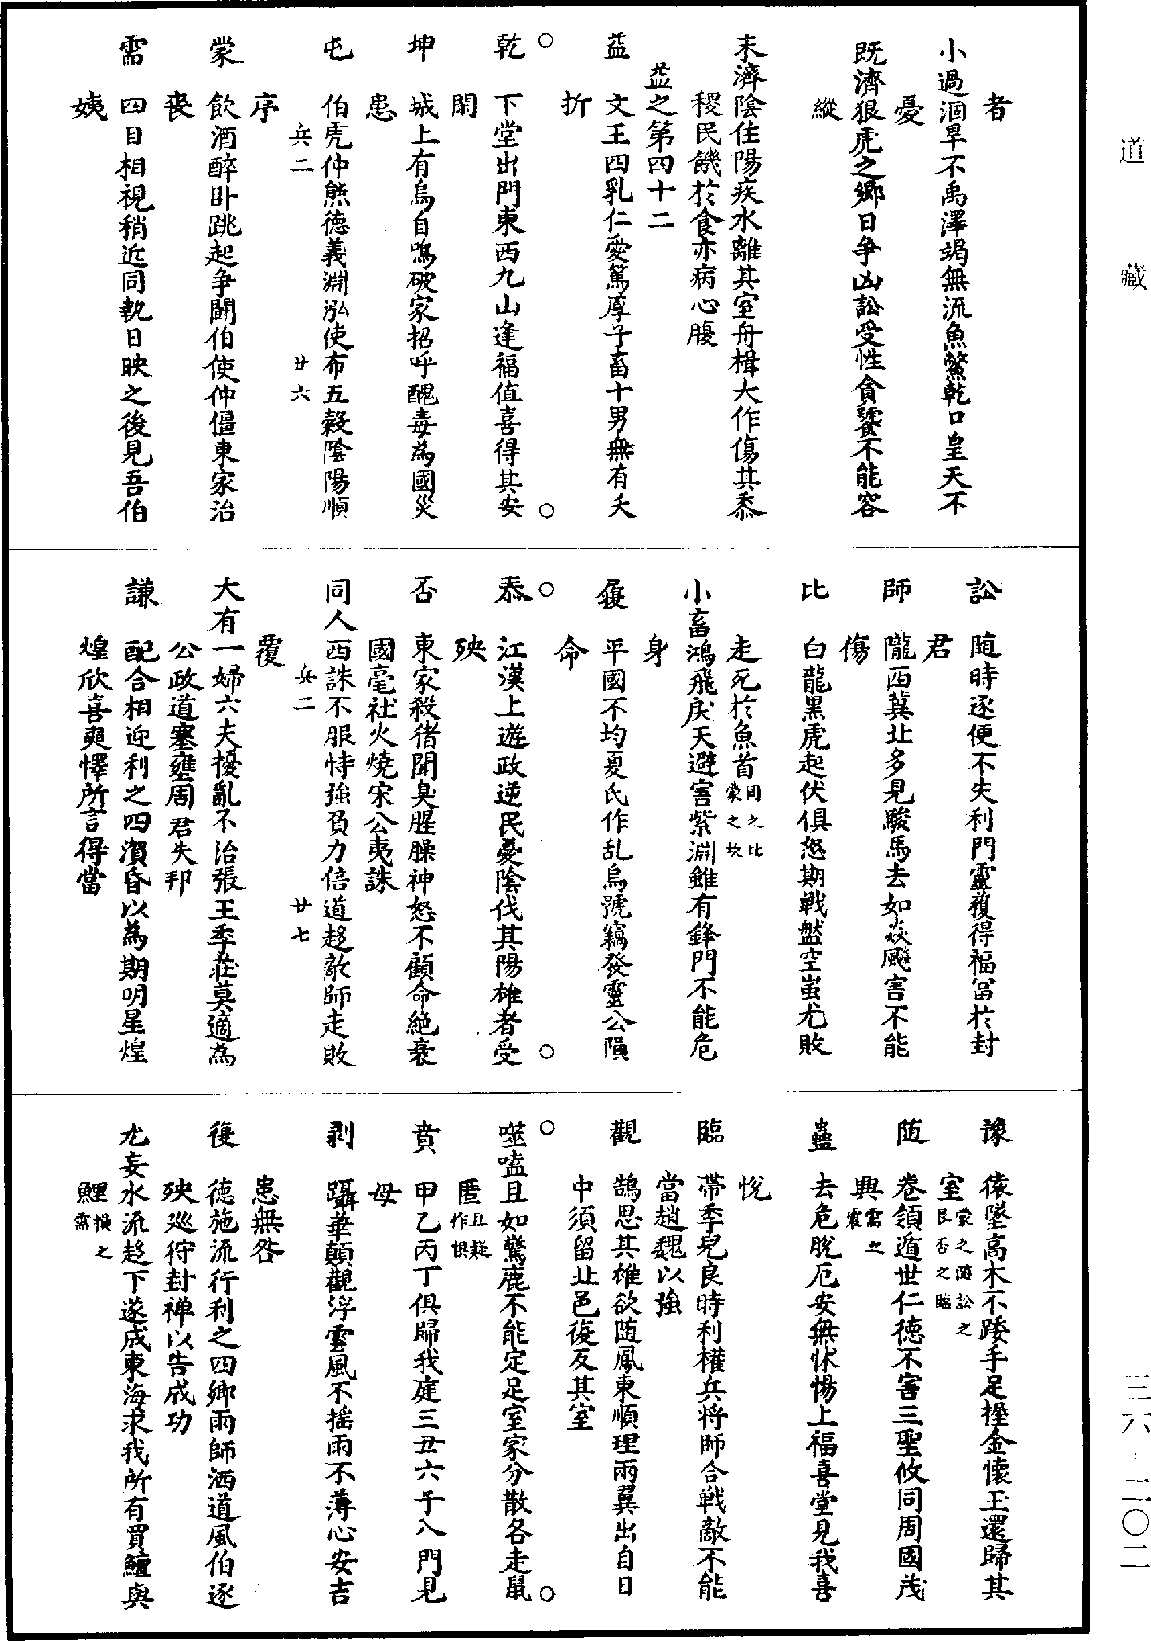 道藏
者
小過涸旱不禹澤竭無流魚鱉乾口皇天不
憂
既濟狼虎之鄉日争凶訟受性貪饕不能容
縱
未濟陰住陽疾水離其室舟楫大作傷其黍
稷民饑於食亦病心腹
益之第四十二
益 文王四乳仁愛篤厚子畜十男無有夭
折
乾 下堂出門東西九山逢福值喜得其安
閑
坤 城上有烏自鳴破家招呼醜毒為國災
患
屯 伯虎仲熊德義淵泓使布五穀陰陽順
兵二 廿六
序
蒙 飲酒醉卧跳起争鬪伯使仲僵東家治
喪
需 四目相視稍近同軌日昳之後見吾伯
姨
訟 隨時逐便不失利門靈獲得福富於封
君
師 隴西冀北多見駿馬去如焱颷害不能
傷
比 白龍黑虎起伏俱怒期戰盤空蚩尤敗
走死於魚首同之比蒙之坎
小畜鴻飛戾天避害紫淵雖有鋒門不能危
身
履 平國不均夏氏作乱烏號竊發靈公隕
命
泰 江漢上遊政逆民憂陰伐其陽雄者受
殃
否 東家殺猪聞臭腥臊神怒不顧命絶衰
國亳社火燒宋公夷誅
同人西誅不服恃強負力倍道趍敵師走敗
兵二 廿七
覆
大有一婦六夫擾亂不治張王季莊莫適為
公政道塞壅周君失邦
謙 配合相迎利之四濱昏以為期明星煌
煌欣喜爽懌所言得當
豫 猿墜高木不踒手足握金懷玉還歸其
室蒙之隨訟之艮否之臨
随 卷領遁世仁德不害三聖攸同周國茂
興需之震
蠱 去危脫厄安無怵惕上福喜堂見我喜
悅
臨 帶季兒良時利權兵將師合戰敵不能
當趙魏以強
觀 鵠思其雄欲随鳳東順理兩翼出自日
中須留北邑復反其室
噬嗑且如驚鹿不能定足室家分散各走鼠
匿丑疑作惧
賁 甲乙丙丁俱歸我庭三丑六子八門見
母
剥 躡華顛觀浮雲風不搖雨不薄心安吉
患無咎
復 德施流行利之四鄉雨師洒道風伯逐
殃巡狩封禅以告成功
尢妄水流趍下遂成東海求我所有買鱣與
鯉損之需
三六-二〇二